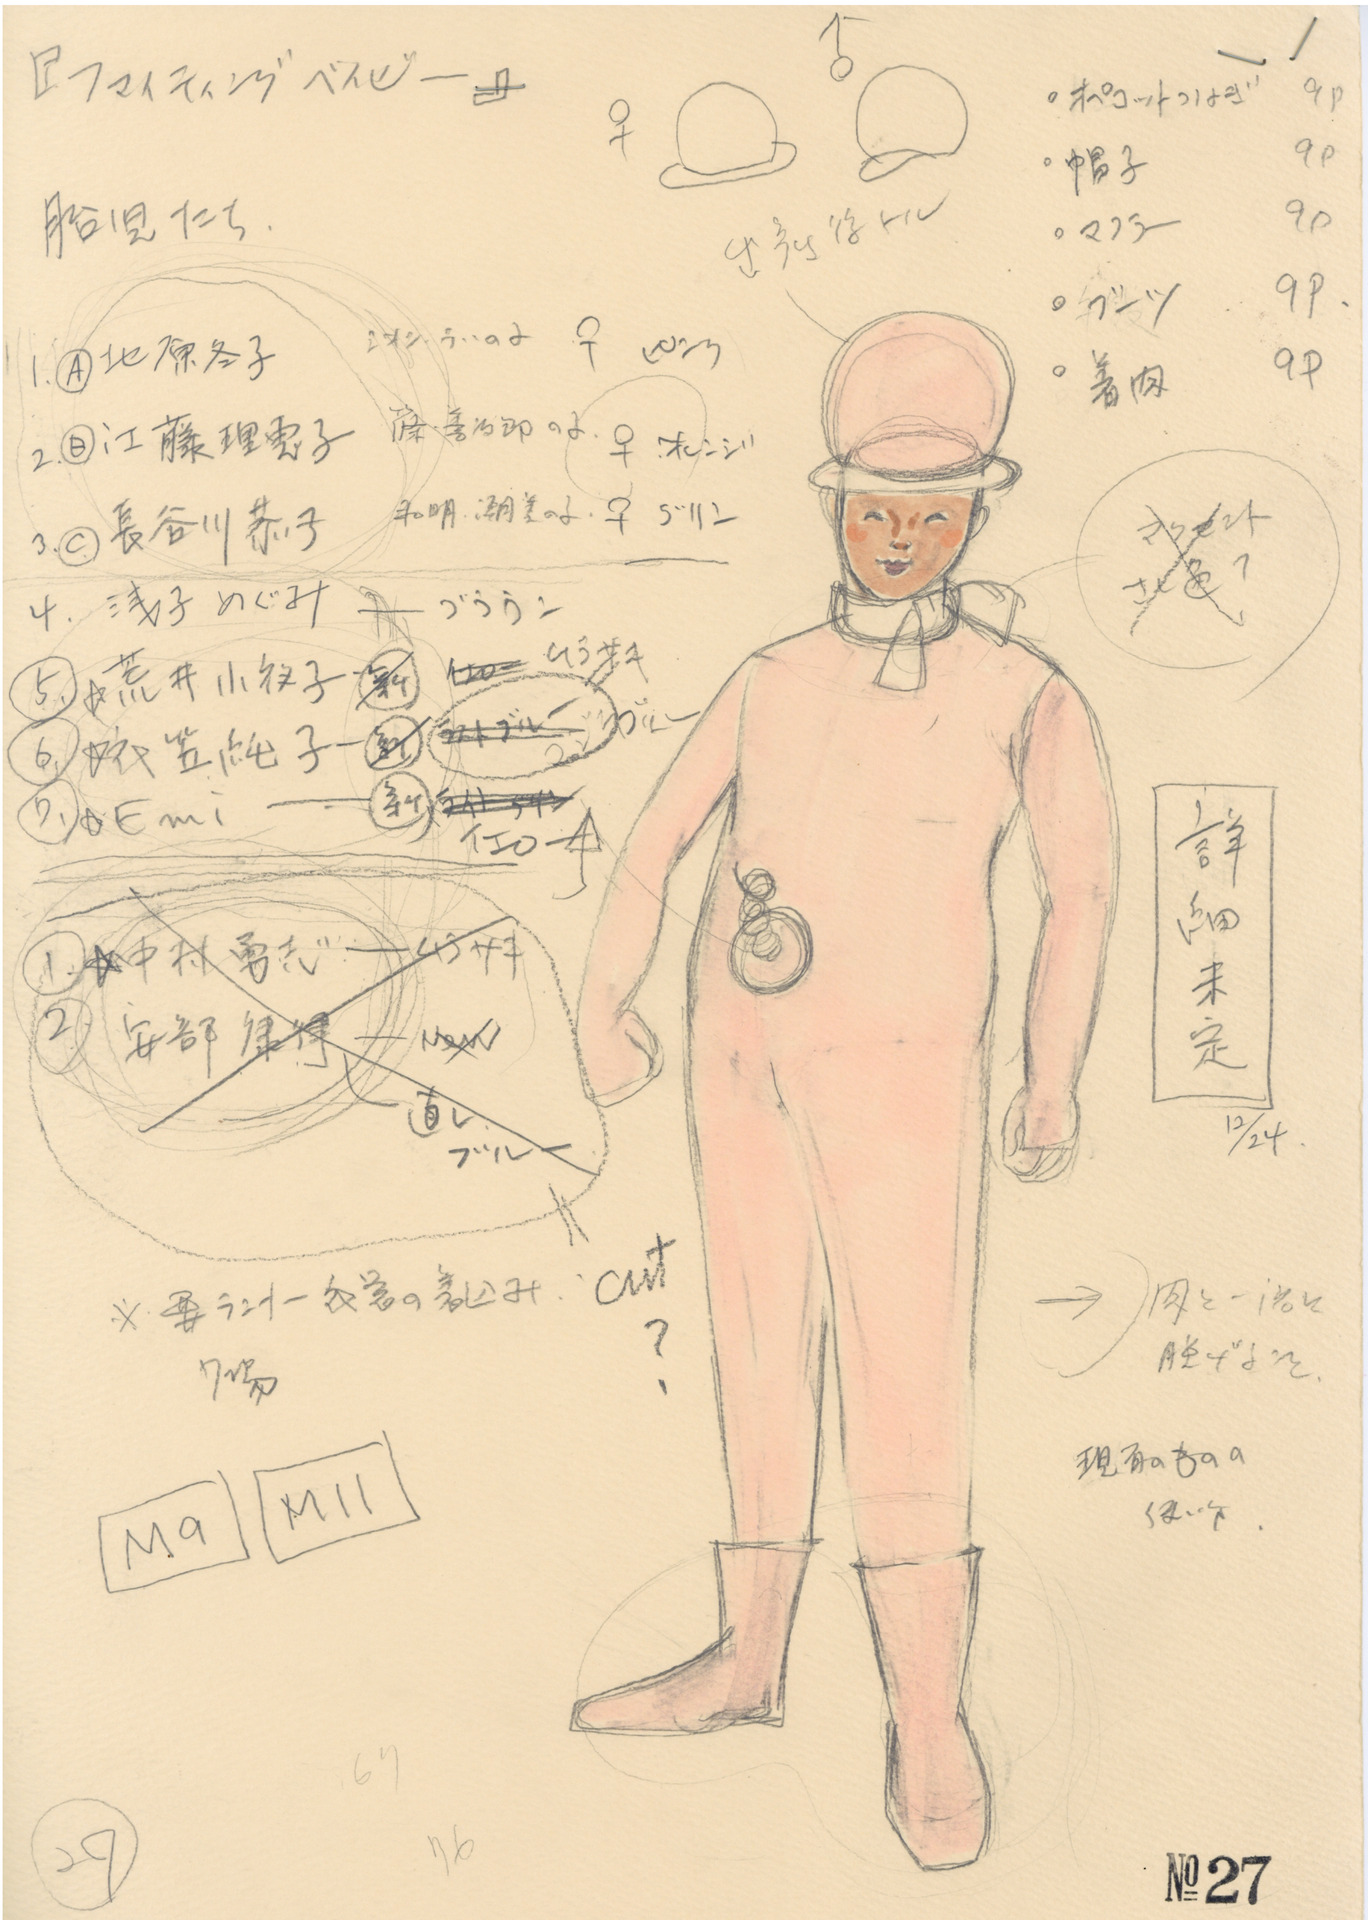 『ファイティングベイビー』
胎児たち.
♀
♂
出産後トル
・オペコットつなぎ 9P
・帽子 9P
・マフラー 9P
・ブーツ 9P.
・着肉 9P
1. Ⓐ 北原冬子 シオン・ういの子 ♀ ピンク
2. Ⓑ 江藤理恵子 の子. ♀ オレンジ
3. Ⓒ 長谷川恭子 和明・潮美の子. ♀ グリーン
4. 浅子めぐみ — ブラウン
⑤. ☆荒井小夜子 — 新 ムラサキ
⑥. ☆衣笠純子 — 新 ブルー
⑦. ☆Emi — 新 イエロー
①. ☆中村勇志 — ムラサキ
② 安部 — New
直し
ブルー
詳細未定
12/24.
※ ランナー 衣裳の着込み.
ワ場
cut
?
→ 肉と一諸に
脱げるように.
現有のものの
使い方.
M9
M11
67
76
27
№27